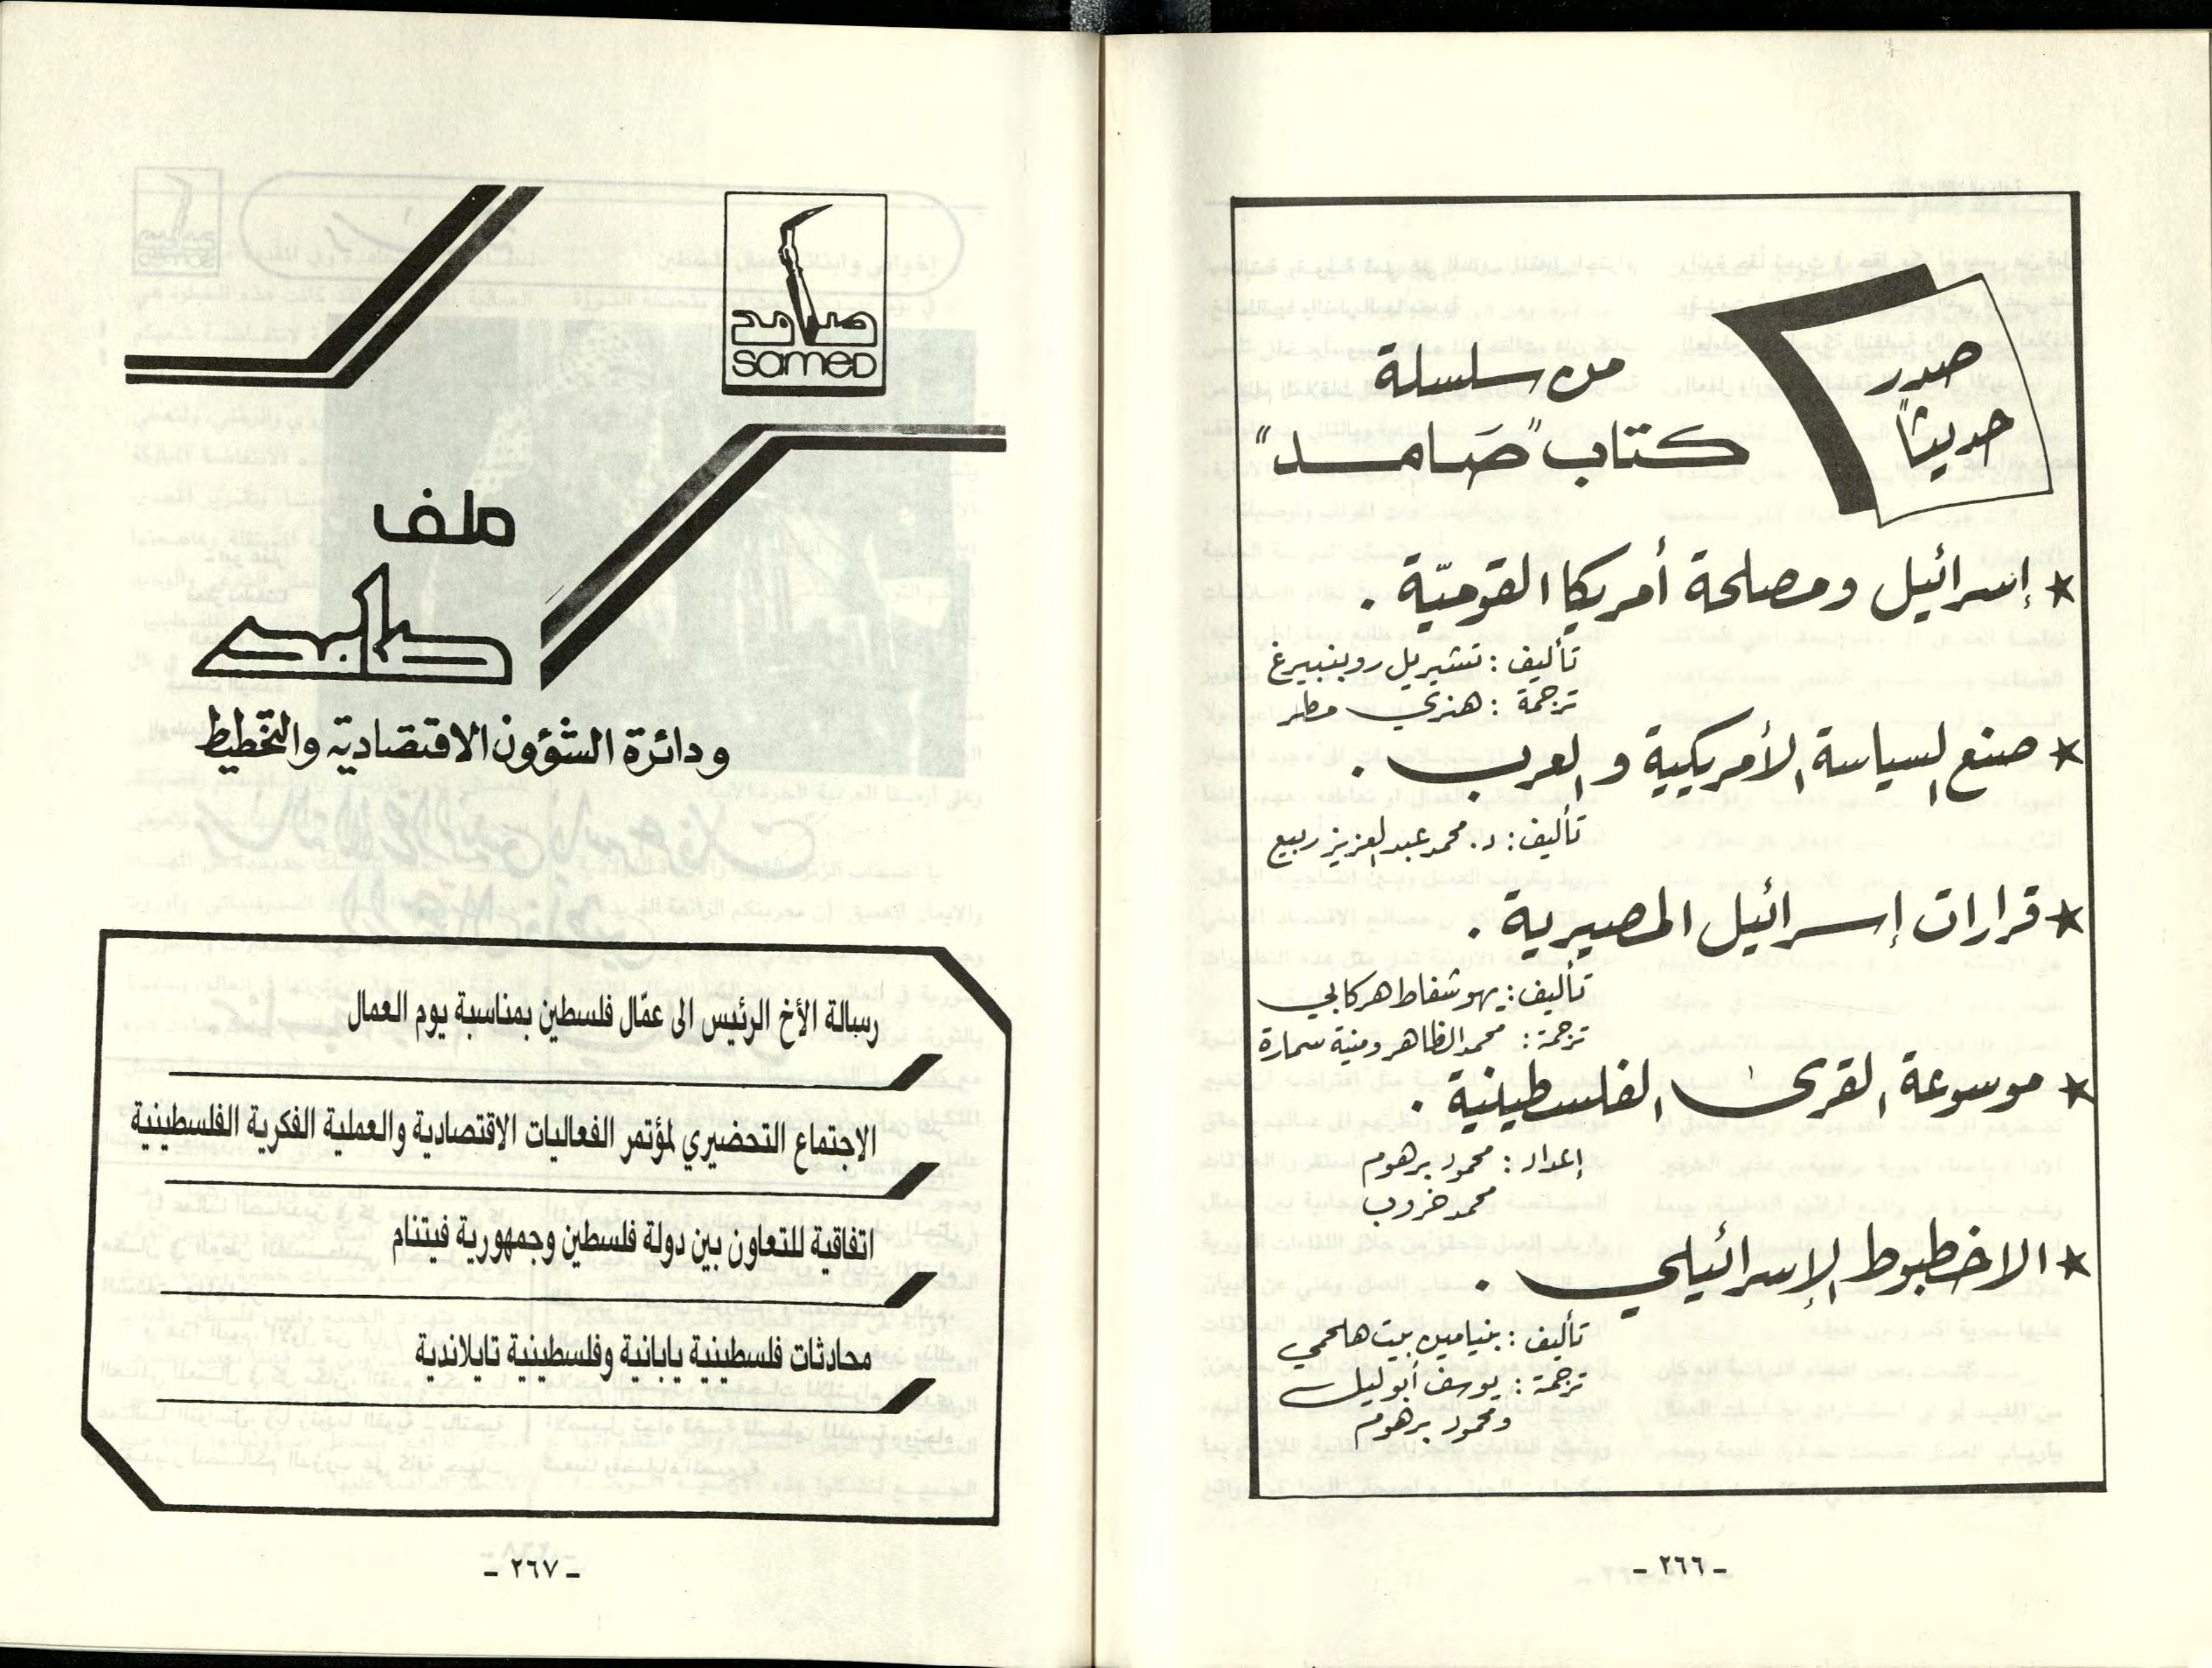 صدر
حديثاً
من سلسلة
كتاب "صَامد"
★ إسرائيل ومصلحة أمريكا القوميّة .
تأليف : تشيريل روبنبيرغ
ترجمة : هنري مطر
★ صنع السياسة الأمريكية والعرب .
تأليف : د. محمد عبد العزيز ربيع
★ قرارات إسرائيل المصيرية .
تأليف : يهوشفاط هركابي
ترجمة : محمد الظاهر ومنية سمارة
★ موسوعة القرى الفلسطينية .
إعداد : محمود برهوم
محمد خروب
★ الاخطبوط الإسرائيلي .
تأليف : بنيامين بيت هلحمي
ترجمة : يوسف أبو ليل
ومحمود برهوم
ـ ٢٦٦ ـ
صامد
SAMED
ملف
صامد
ودائرة الشؤون الاقتصادية والتخطيط
رسالة الأخ الرئيس الى عمّال فلسطين بمناسبة يوم العمال
الاجتماع التحضيري لمؤتمر الفعاليات الاقتصادية والعملية الفكرية الفلسطينية
اتفاقية للتعاون بين دولة فلسطين وجمهورية فيتنام
محادثات فلسطينية يابانية وفلسطينية تايلاندية
ـ ٢٦٧ ـ